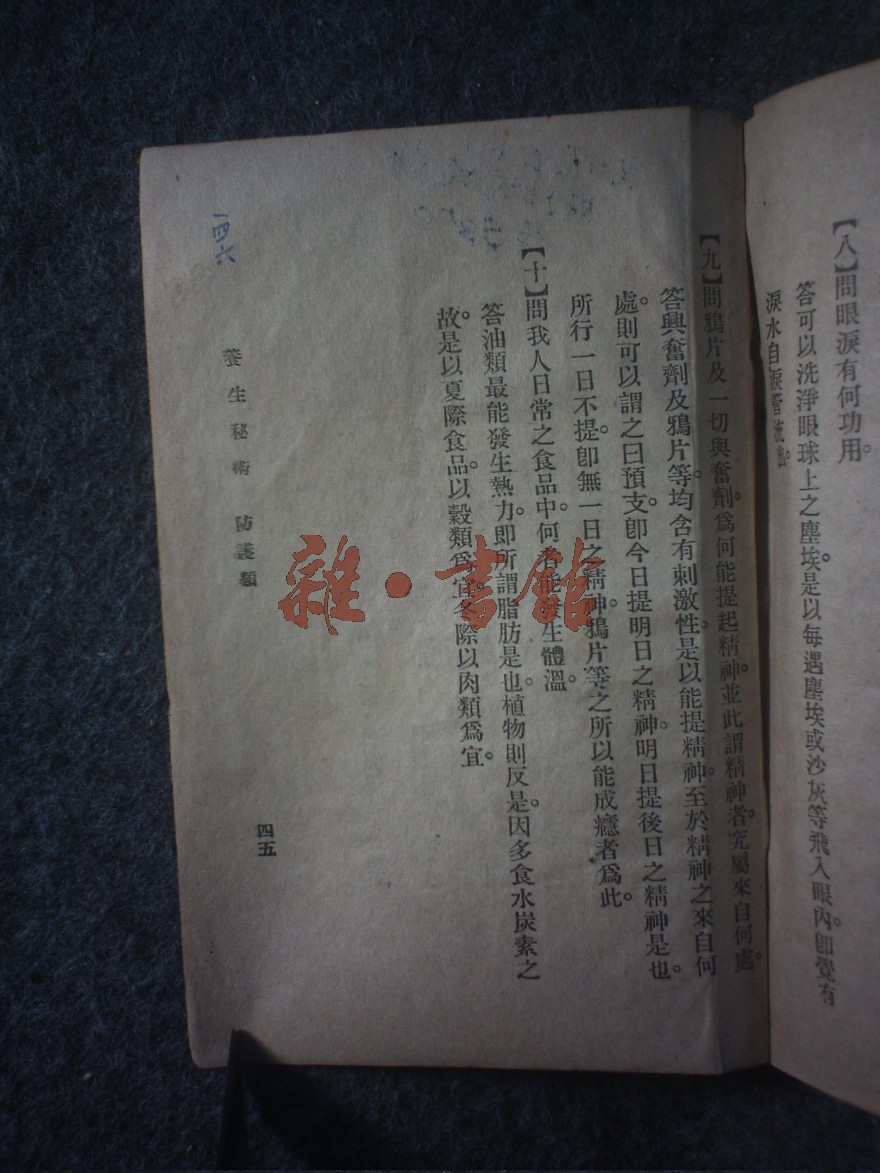 【八】問眼淚有何功用。
答可以洗淨眼球上之塵埃。是以每遇塵埃或沙灰等飛入眼內。卽覺有
淚水自淚管流出。
【九】問鴉片及一切興奮劑。爲何能提起精神。並此謂精神者。究屬來自何處。
答興奮劑及鴉片等。均含有刺激性。是以能提精神。至於精神之來自何
處。則可以謂之曰預支。卽今日提明日之精神。明日提後日之精神是也。
所行一日不提。卽無一日之精神。鴉片等之所以能成癮者爲此。
【十】問我人日常之食品中。何者能發生體溫。
答油類最能發生熱力。卽所謂脂肪是也。植物則反是。因多食水炭素之
故。是以夏際食品。以穀類爲宜。冬際以肉類爲宜。
養生秘術 防護類
四五
一四六
雜·書館